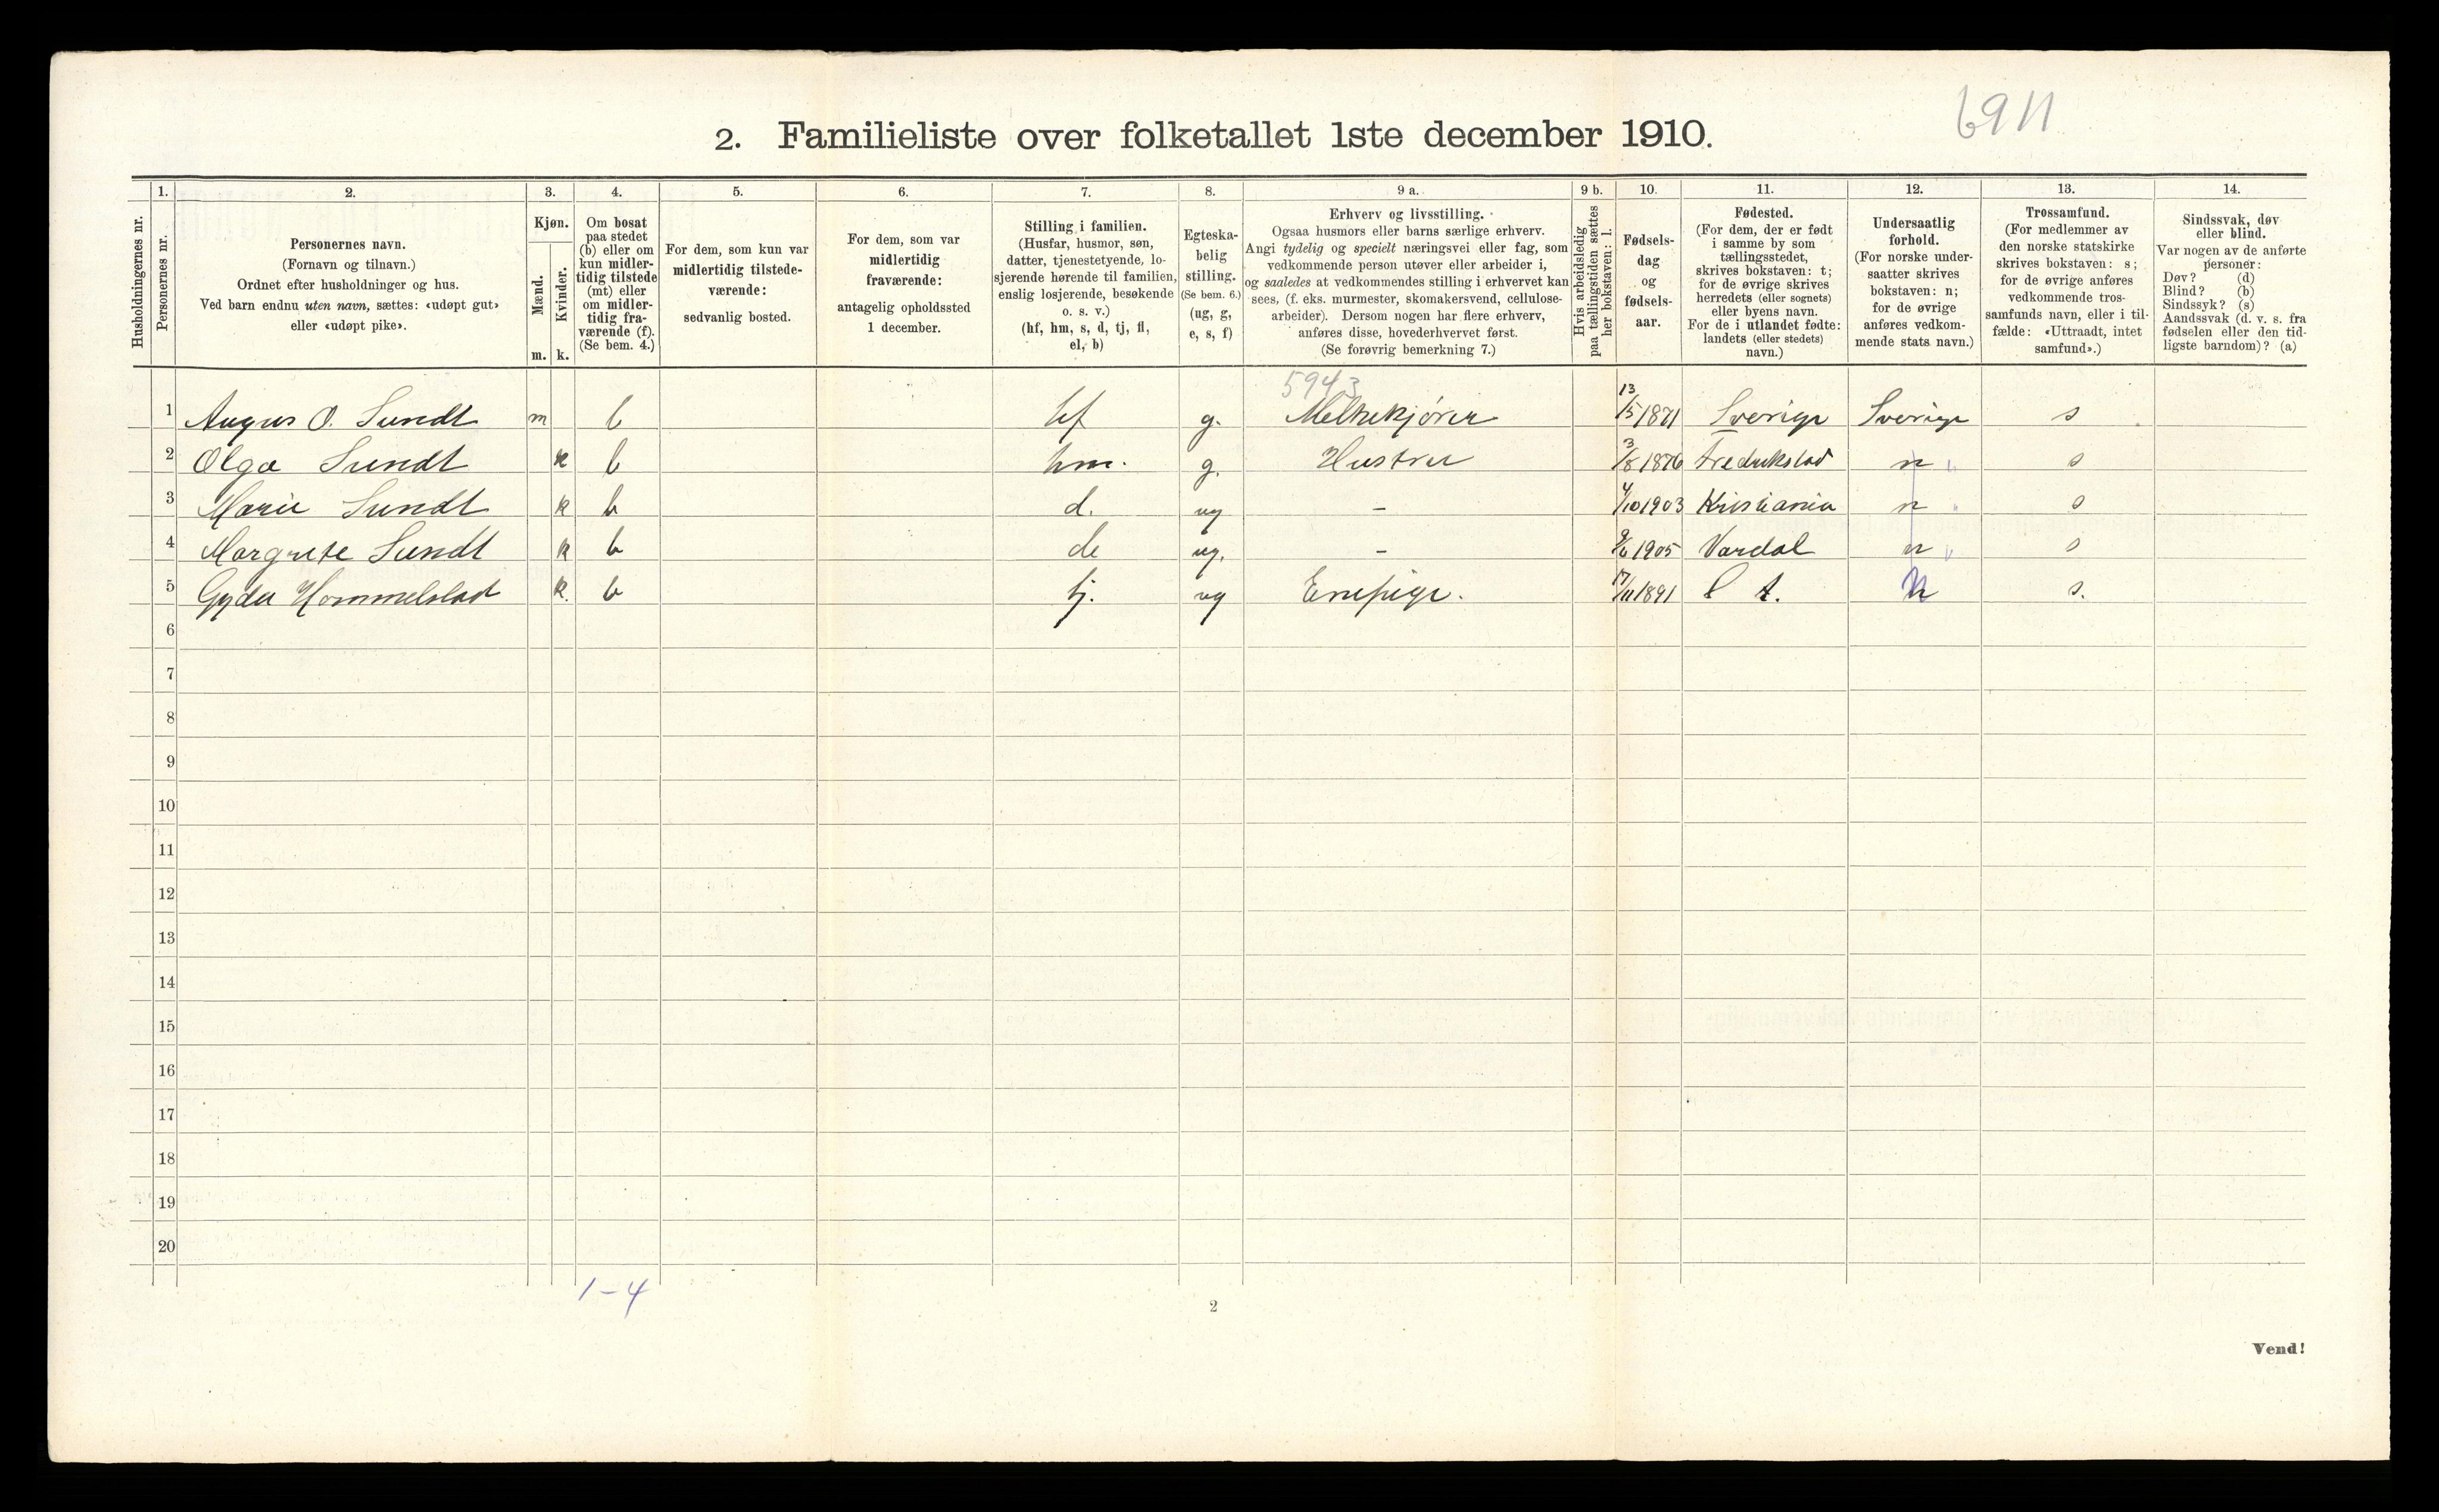 6911
2. Familieliste over folketallet 1ste december 1910.
1. 2. 3. 4. 5. 6. 7. 8. 9 a. 9 b. 10. 11. 12. 13. 14.
Husholdningernes nr.
Personernes nr.
Personernes navn.
(Fornavn og tilnavn.)
Ordnet efter husholdninger og hus.
Ved barn endnu uten navn, sættes: «udøpt gut»
eller «udøpt pike».
Kjøn.
Mænd.
Kvinder.
m. k.
Om bosat
paa stedet
(b) eller om
kun midler-
tidig tilstede
(mt) eller
om midler-
tidig fra-
værende (f).
(Se bem. 4.)
For dem, som kun var
midlertidig tilstede-
værende:
sedvanlig bosted.
For dem, som var
midlertidig
fraværende:
antagelig opholdssted
1 december.
Stilling i familien.
(Husfar, husmor, søn,
datter, tjenestetyende, lo-
sjerende hørende til familien,
enslig losjerende, besøkende
o. s. v.)
(hf, hm, s, d, tj, fl,
el, b)
Egteska-
belig
stilling.
(Se bem. 6.)
(ug, g,
e, s, f)
Erhverv og livsstilling.
Ogsaa husmors eller barns særlige erhverv.
Angi tydelig og specielt næringsvei eller fag, som
vedkommende person utøver eller arbeider i,
og saaledes at vedkommendes stilling i erhvervet kan
sees, (f. eks. murmester, skomakersvend, cellulose-
arbeider). Dersom nogen har flere erhverv,
anføres disse, hovederhvervet først.
(Se forøvrig bemerkning 7.)
Hvis arbeidsledig
paa tællingstiden sættes
her bokstaven: l.
Fødsels-
dag
og
fødsels-
aar.
Fødested.
(For dem, der er født
i samme by som
tællingsstedet,
skrives bokstaven: t;
for de øvrige skrives
herredets (eller sognets)
eller byens navn.
For de i utlandet fødte:
landets (eller stedets)
navn.)
Undersaatlig
forhold.
(For norske under-
saatter skrives
bokstaven: n;
for de øvrige
anføres vedkom-
mende stats navn.)
Trossamfund.
(For medlemmer av
den norske statskirke
skrives bokstaven: s;
for de øvrige anføres
vedkommende tros-
samfunds navn, eller i til-
fælde: «Uttraadt, intet
samfund».)
Sindssvak, døv
eller blind.
Var nogen av de anførte
personer:
Døv? (d)
Blind? (b)
Sindssyk? (s)
Aandssvak (d. v. s. fra
fødselen eller den tid-
ligste barndom)? (a)
5943
1 Augus O. Sundt m b hf g. Melkekjører 13/5 1871 Sverige Sverige s
2 Olga Sundt k b hm. g. Hustru 3/8 1876 Fredrikstad n s
3 Marie Sundt k b d. ug - 4/10 1903 Kristiania n s
4 Margrete Sundt k b de ug. - 9/6 1905 Vardal n s
5 Gyda Hommelstad k. b tj. ug Enepige. 17/11 1891 t. n s.
6
7
8
9
10
11
12
13
14
15
16
17
18
19
20
1-4
2
Vend!